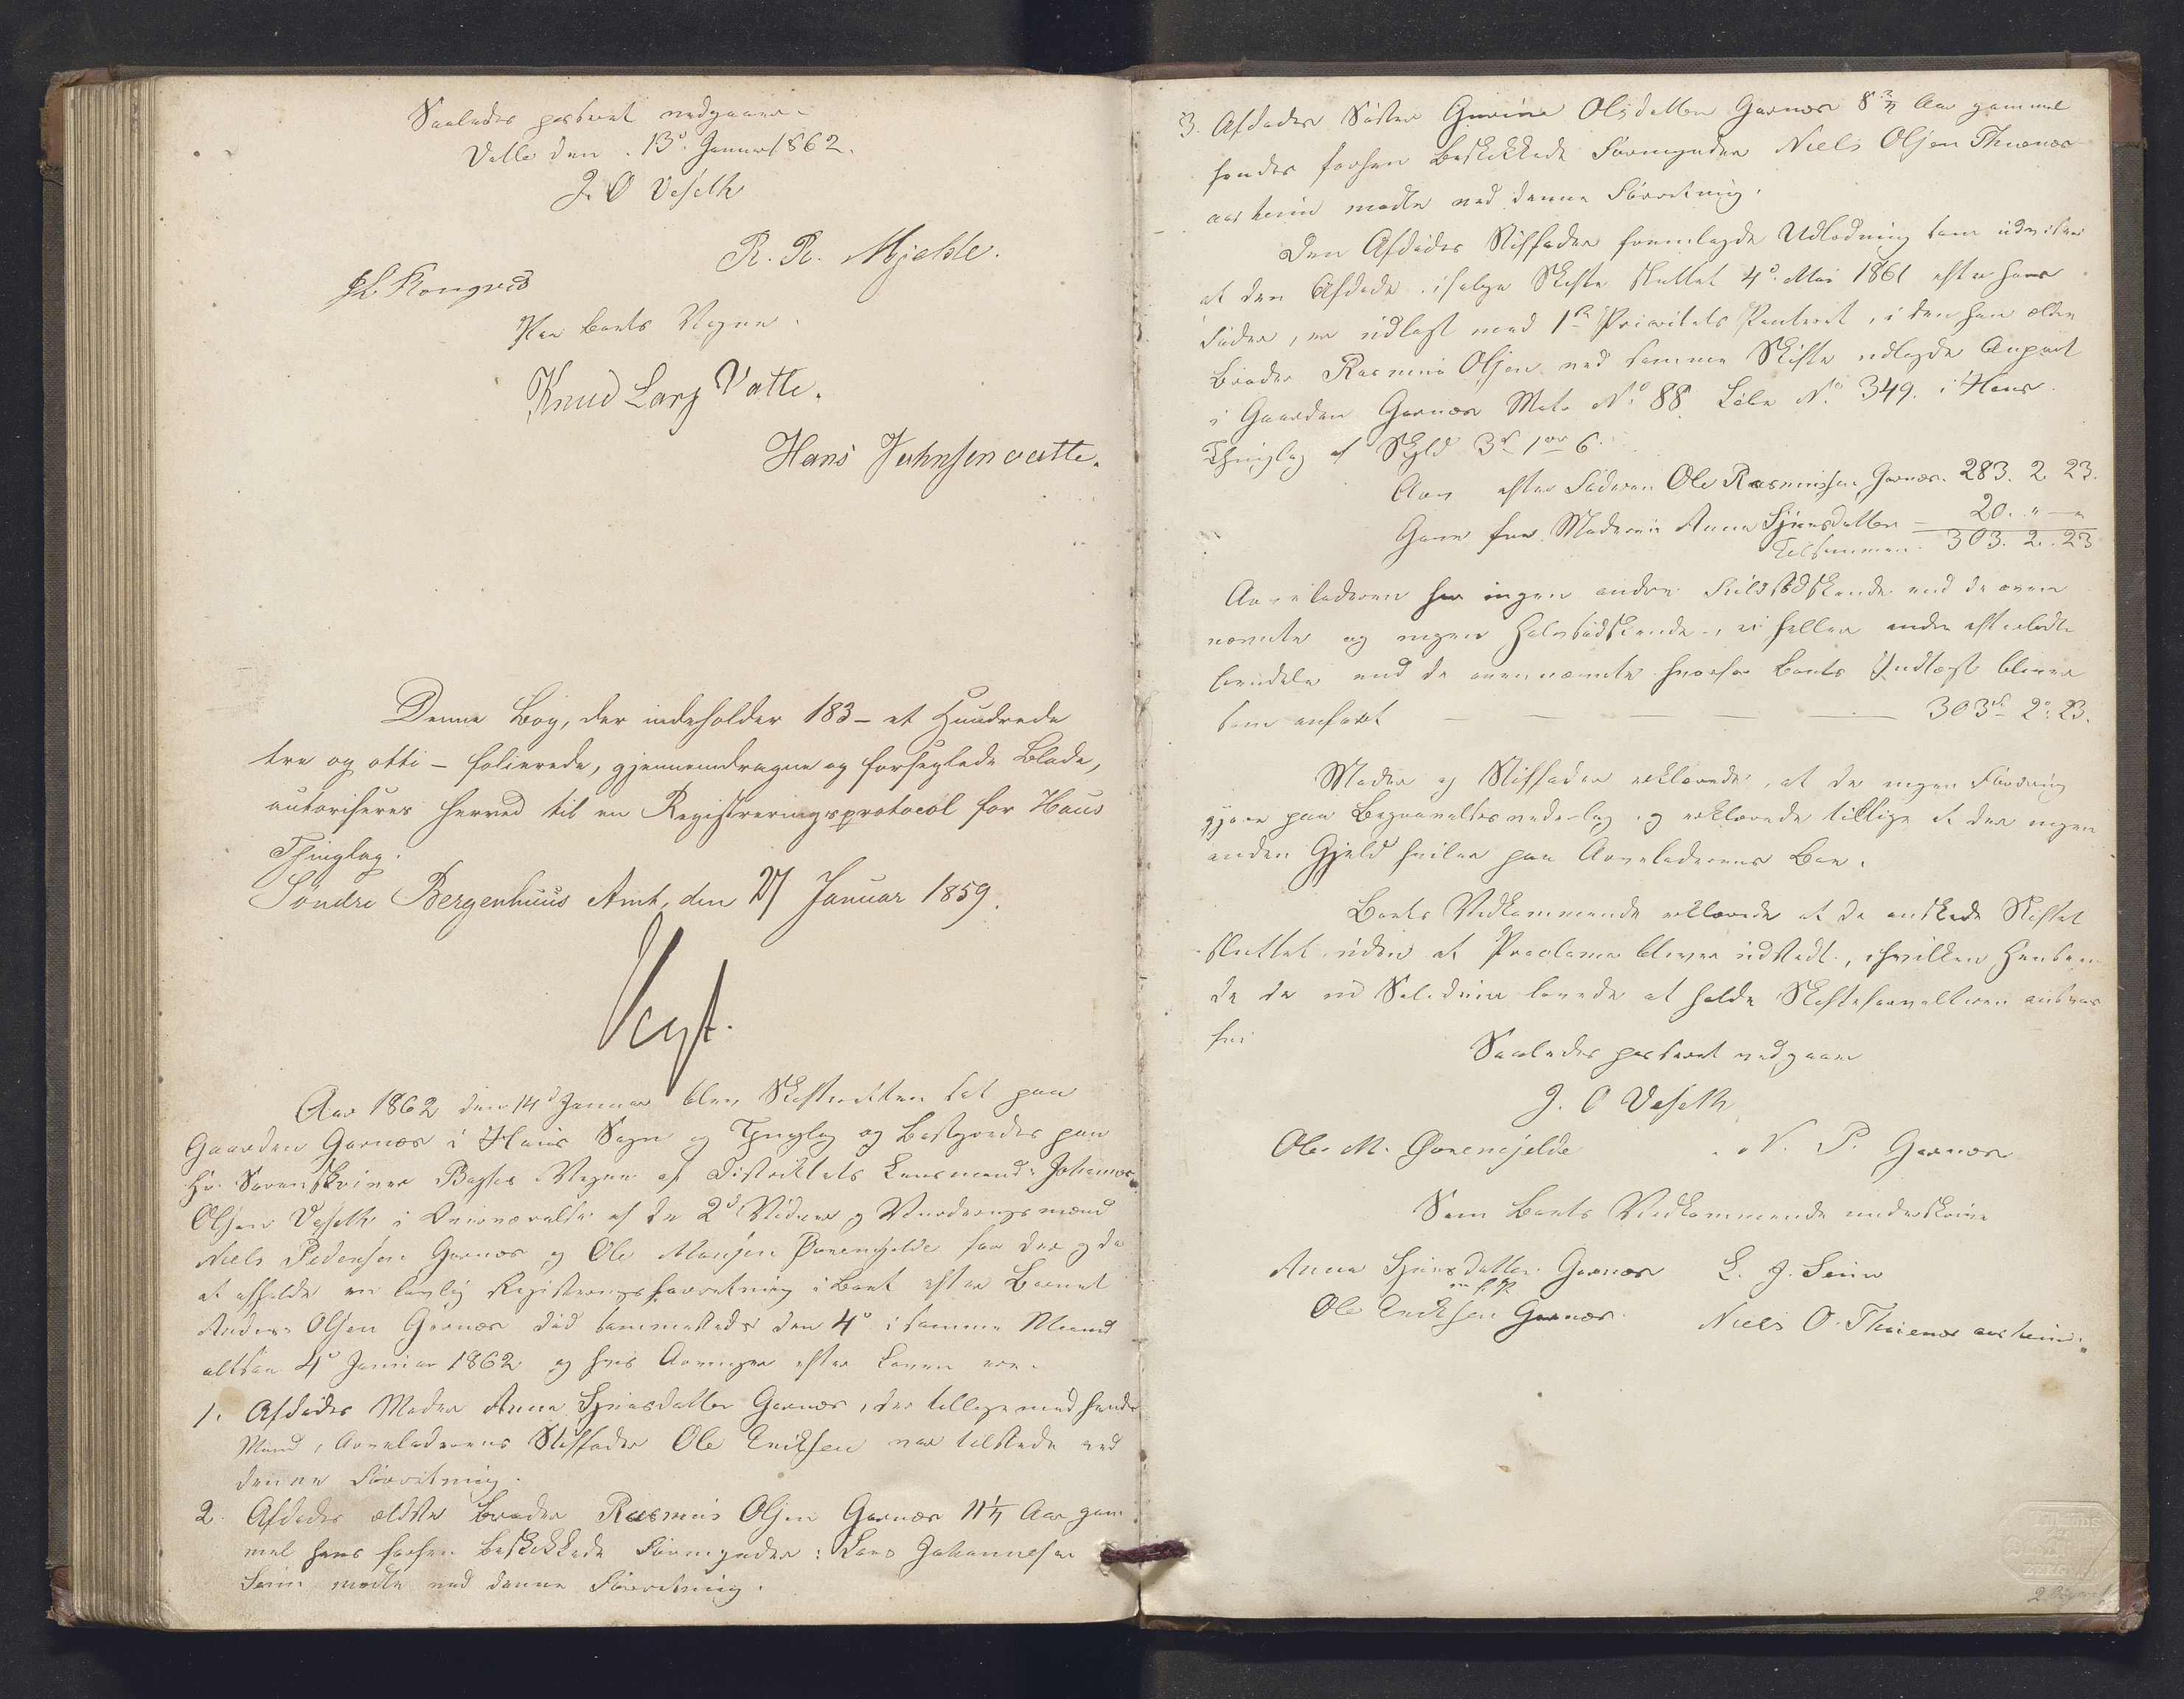 Saaledes passeret vedgaaer.
Valle den 13d Januar 1862.
J. O Veseth
R. R. Mjelde.
Paa Boets Vegne.
Knud Larss Vatle.
Hans Johnsen vatle.
Denne Bog, der indeholder 183 - et Hundrede
tre og otti - folierede, gjennemdragne og forseglede Blade,
autoriseres herved til en Registreringsprotocol for Haus
Thinglag.
Søndre Bergenhuus Amt, den 27 Januar 1859.
Aar 1862 den 14d Januar blev Skifteretten sat paa
Gaarden Garnæs i Haus Sogn og Thinglag og bestyredes paa
Hr. Sorenskriver Vegne af Distriktets Lensmand Johannes
Olsen Veseth i Overværelse af de 2d Vidner og Vurderingsmænd
Niels Pedersen Garnæs og Ole Monsen for der og da
at afholde en lovlig Registreringsforretning i Boet efter Barnet
Anders Olsen Garnæs død sammesteds den 4d i samme Maaned
altsaa 4d Januar 1862 og hvis Arvinger efter Loven ere.
1. Afdødes Moder Anna Sjursdatter Garnæs, der tilligemed hendes
Mand, Arveladerens Stiffader Ole Eriksen var tilstede ved
denne Forretning.
2. Afdødes ældste Broder Rasmus Olsen Garnæs 11 Aar gam
mel hans forhen beskikkede Formynder: Lars Johannessen
mødte ved denne Forretning.
3. Afdødes Søster Gurine Olsdatter Garnæs 8 Aar gammel
hendes forhen beskikkede Formynder Niels Olsen
mødte ved denne Forretning.
Den Afdødes Stiffader fremlagde Udlodning som udviser
at den Afdøde ifølge Skifte sluttet 4d Mai 1861 efter hans
Fader, er udlagt med 1ste Prioritets Panteret, i den hans ældre
Broder Rasmus Olsen ved samme Skifte udlagde Anpart
i Gaarden Garnæs Mat. No 88 Løbe No 349. i Haus
Thinglag af Skyld 3d 1ort 6.
Arv efter Faderen Ole Rasmussen Garnæs. 283. 2 23.
Gave fra Moderen Anna Sjursdatter - 20. " - "
Tilsammen. 303. 2. 23
Arveladeren har ingen andre Heldsødskende end de oven
nævnte og ingen Halvsødskende, ei heller andre efterladte
Eiendele end de ovennævnte hvorfor Boets Indtægt bliver
som anført 303d 2. 23.
Moder og Stiffader erklærede, at de ingen Fordring
gjøre paa Begravelsesvederlag og erklærede tillige at der ingen
anden Gjeld hviler paa Arveladerens Boe.
Boets Vedkommende erklærede at de ønskede Skiftet
sluttet uden at Proclama bliver udstedt, i hvilken Henseen
de de in Solidum lovede at holde Skifteforvalteren ansvars
fri
Saaledes passeret vedgaaer
J. O Veseth
Ole. M. N. P. Garnæs
Som Boets Vedkommende underskrive
Anna Sjursdatter Garnæs L. J.
m. f. P.
Ole Eriksen Garnæs. Niels O.